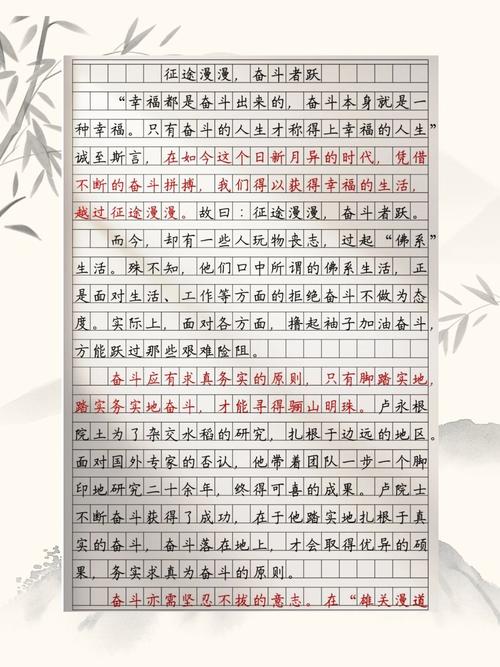 征途漫漫，奋斗者跃
“幸福都是奋斗出来的，奋斗本身就是一
种幸福。只有奋斗的人生才称得上幸福的人生”
诚至斯言，在如今这个日新月异的时代，凭借
不断的奋斗拼搏，我们得以获得幸福的生活，
越过征途漫漫。故曰：征途漫漫，奋斗者跃。
而今，却有一些人玩物丧志，过起“佛系”
生活。殊不知，他们口中所谓的佛系生活，正
是面对生活、工作等方面的拒绝奋斗不做为态
度。实际上，面对各方面，撸起袖子加油奋斗，
方能跃过那些艰难险阻。
奋斗应有求真务实的原则，只有脚踏实地，
踏实务实地奋斗，才能寻得骊山明珠。卢永根
院士为了杂交水稻的研究，扎根于边远的地区。
面对国外专家的否认，他带着团队一步一个脚
印地研究二十余年，终得可喜的成果。卢院士
不断奋斗获得了成功，在于他踏实地扎根于真
实的奋斗，奋斗落在地上，才会取得优异的硕
果，务实求真为奋斗的原则。
奋斗亦需坚忍不拔的意志。在“雄关漫道